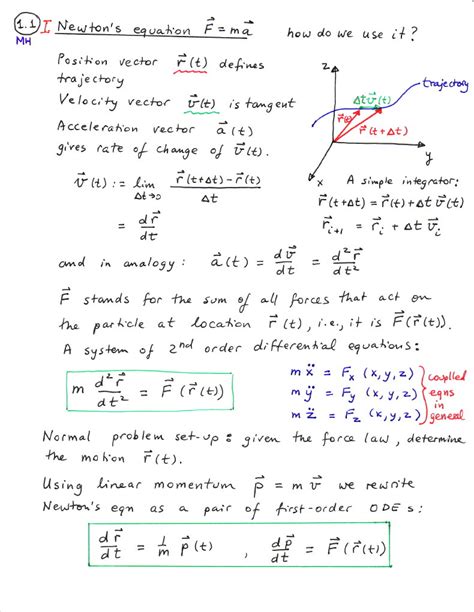 1.1 I Newton's equation F⃗ = ma⃗ how do we use it?
MH
Position vector r⃗(t) defines
trajectory
Velocity vector v⃗(t) is tangent
Acceleration vector a⃗(t)
gives rate of change of v⃗(t).
z
trajectory
Δt v⃗(t)
r⃗(t)
r⃗(t+Δt)
y
x
v⃗(t) := lim Δt→0 (r⃗(t+Δt) − r⃗(t)) / Δt
= dr⃗/dt
A simple integrator:
r⃗(t+Δt) = r⃗(t) + Δt v⃗(t)
r⃗ᵢ₊₁ = r⃗ᵢ + Δt v⃗ᵢ
and in analogy: a⃗(t) = dv⃗/dt = d²r⃗/dt²
F⃗ stands for the sum of all forces that act on
the particle at location r⃗(t), i.e., it is F⃗(r⃗(t)).
A system of 2nd order differential equations:
m d²r⃗/dt² = F⃗(r⃗(t))
m ẍ = Fx (x,y,z)
m ÿ = Fy (x,y,z)
m z̈ = Fz (x,y,z)
coupled
eqns
in
general
Normal problem set-up: given the force law, determine
the motion r⃗(t).
Using linear momentum p⃗ = m v⃗ we rewrite
Newton's eqn as a pair of first-order ODEs:
dr⃗/dt = 1/m p⃗(t) , dp⃗/dt = F⃗(r⃗(t))